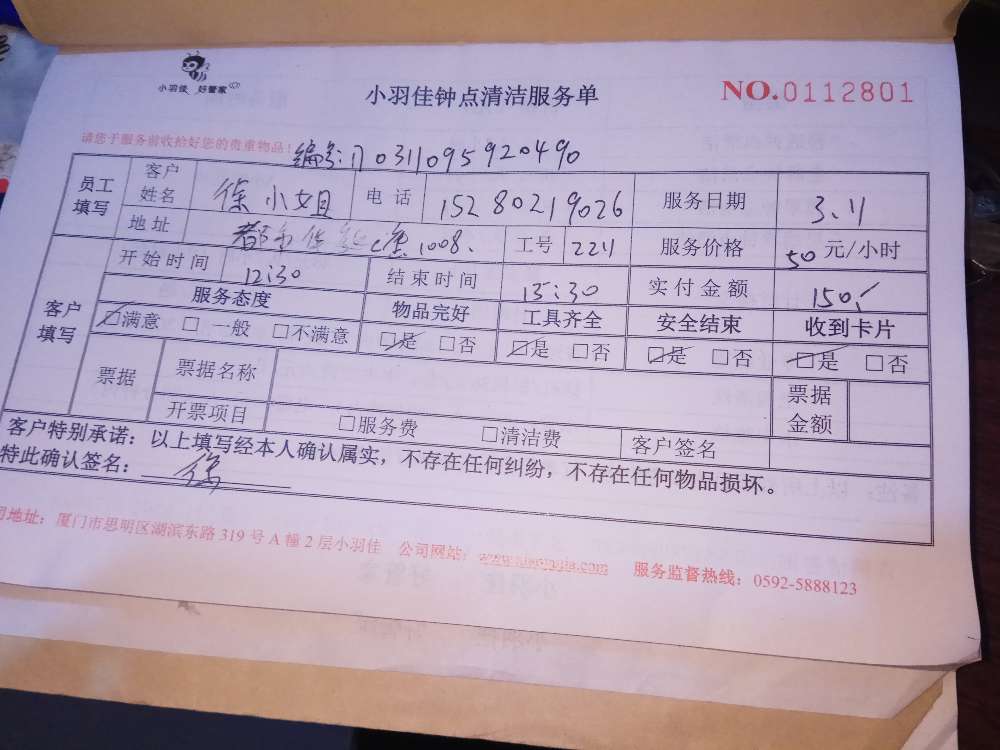 小羽佳 好管家
小羽佳钟点清洁服务单
NO.0112801
请您于服务前收拾好您的贵重物品!
编号:170311095920490
员工填写 客户姓名 徐小姐 电话 15280219026 服务日期 3.11
地址 都市佳 1008. 工号 2211 服务价格 50元/小时
客户填写 开始时间 12:30 结束时间 15:30 实付金额 150
服务态度 物品完好 工具齐全 安全结束 收到卡片
☑满意 □一般 □不满意 ☑是 □否 ☑是 □否 ☑是 □否 ☑是 □否
票据 票据名称 票据金额
开票项目 □服务费 □清洁费 客户签名
客户特别承诺：以上填写经本人确认属实，不存在任何纠纷，不存在任何物品损坏。
特此确认签名： 徐
司地址：厦门市思明区湖滨东路 319 号 A 幢 2 层小羽佳 公司网站： 服务监督热线：0592-5888123